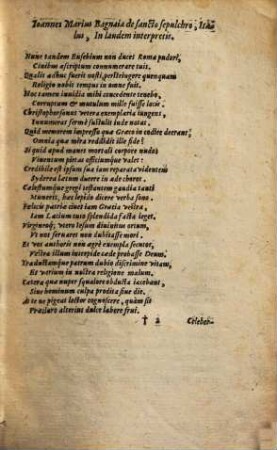 Ioannes Marius Bagnaia de sancto sepulchro, Ita-
lus, In laudem interpretis.
Nunc tandem Eusebium non ducet Roma pudori,
Civibus ascriptum connumerare suis.
Qualis adhuc fuerit nosti, perstringere quenquam
Religio nobis tempus in omne fuit.
Hoc tamen invidia mihi concedente tenebo,
Corruptum & mutulum mille fuisse locis.
Christophorsonus vetera exemplaria tangens,
Innumeras formis sustulit inde notas.
Quid memorem impressa quæ Græco in codice deerant,
Omnia quæ mira reddidit ille fide?
Si quid apud manes mortali corpore nudos
Viventum pietas officiumque valet:
Credibile est ipsum sua iam reparata videntem
Syderea lætum ducere in æde choros.
Cælestumque gregi testantem gaudia tanti
Muneris, hæc lepido dicere verba sono.
Felicis patria civet iam Græcia vestra,
Iam Latium toto splendida facta leget.
Virginioque, vetero iesum divinitus ortum,
Ut vos firmaret non dubitasse mori.
Et vos authoris non ægrè exempla secutos,
Vestra illum intrepidè cæde probasse Deum.
Traductamque patrum dubio discrimine vitam,
Et varium in nostra religione malum.
Cætera quæ nuper squalore obducta iacebant,
Sine hominum culpa prodita sine die.
At te nō pigeat lector cognoscere, quàm sit
Præclaro alterius dulce labore frui.
† 2 Celeber-